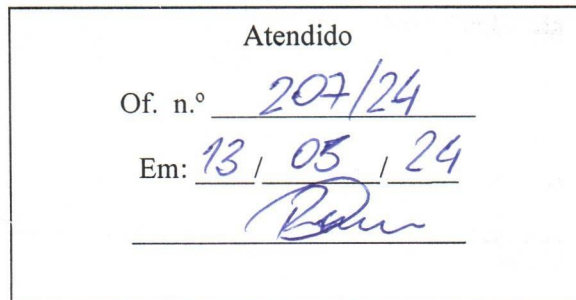 Atendido
Of. n.º 207/24
Em: 13 / 05 / 24